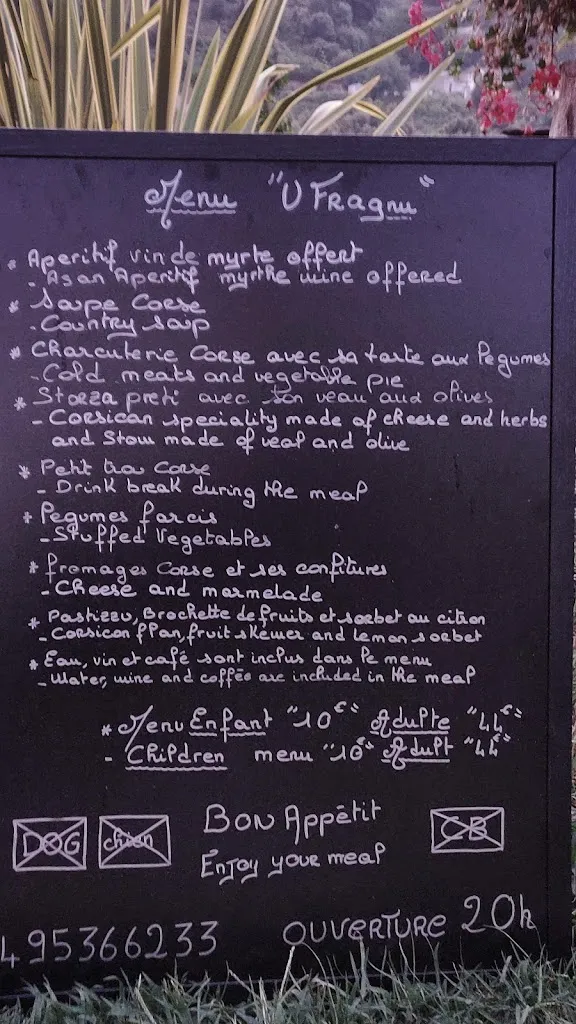 Menu "U Fragnu"
* Aperitif vin de myrte offert
- As an Aperitif myrthe wine offered
* Soupe Corse
- Country soup
* Charcuterie Corse avec sa tarte aux legumes
- Cold meats and vegetable pie
* Storza preti avec son veau aux olives
- Corsican speciality made of cheese and herbs
and Stow made of veal and olive
* Petit trou Corse
- Drink break during the meal
* Legumes farcis
- Stuffed Vegetables
* fromages Corse et ses confitures
- Cheese and marmelade
* Pastizzu, Brochette de fruits et sorbet au citron
- Corsican flan, fruit skewer and lemon sorbet
* Eau, vin et café sont inclus dans le menu
- Water, wine and coffée are included in the meal
* Menu Enfant "10€" Adulte "44€"
- Children menu "10€" Adult "44€"
DOG chien Bon Appétit CB
Enjoy your meal
495366233 OUVERTURE 20h